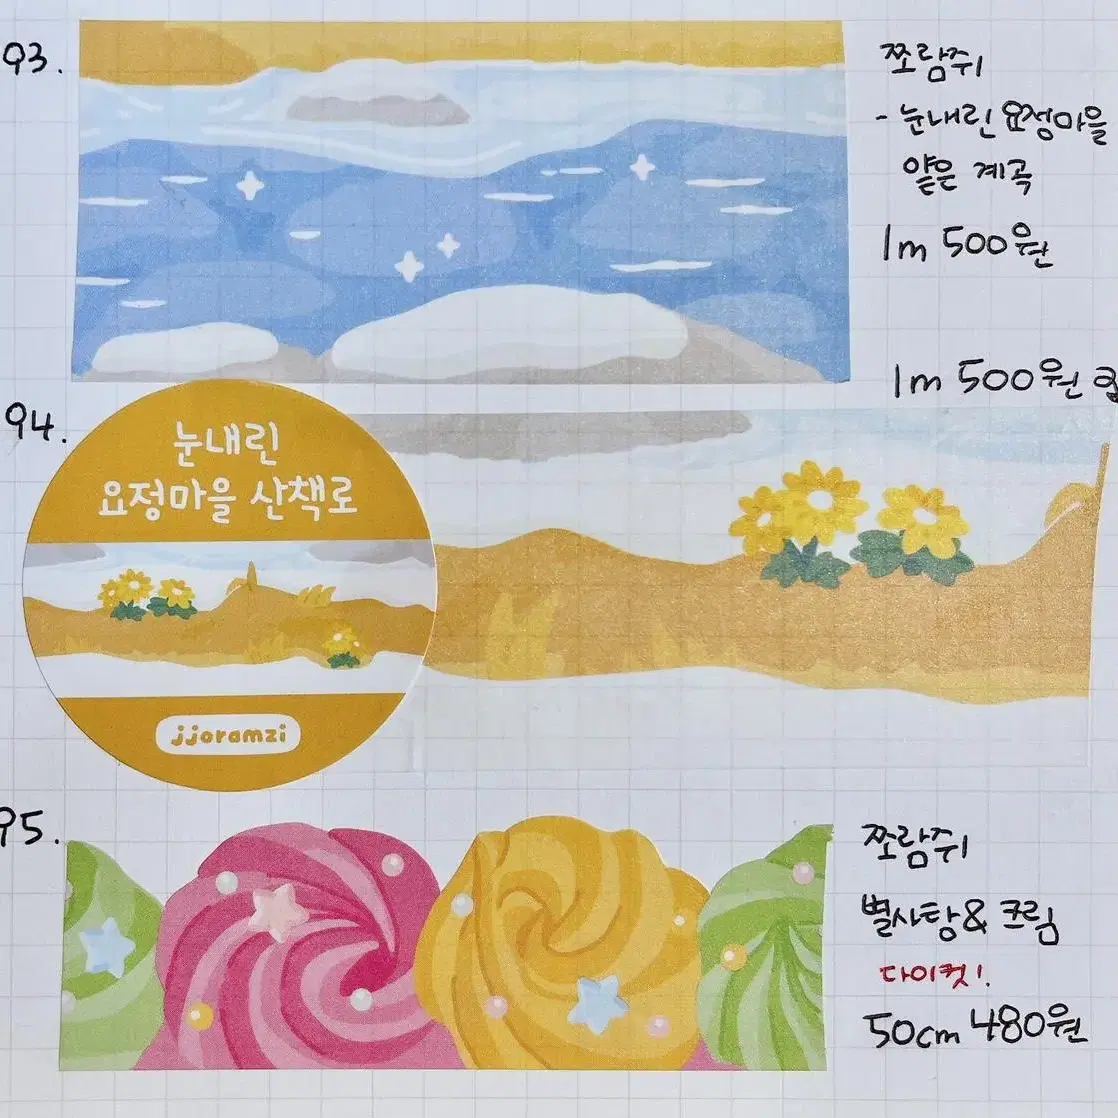 93.
쪼람쥐
- 눈내린 요정마을
얕은 계곡
1m 500원
94.
1m 500원
눈내린
요정마을 산책로
jjoramzi
95.
쪼람쥐
별사탕& 크림
다이컷!
50cm 480원